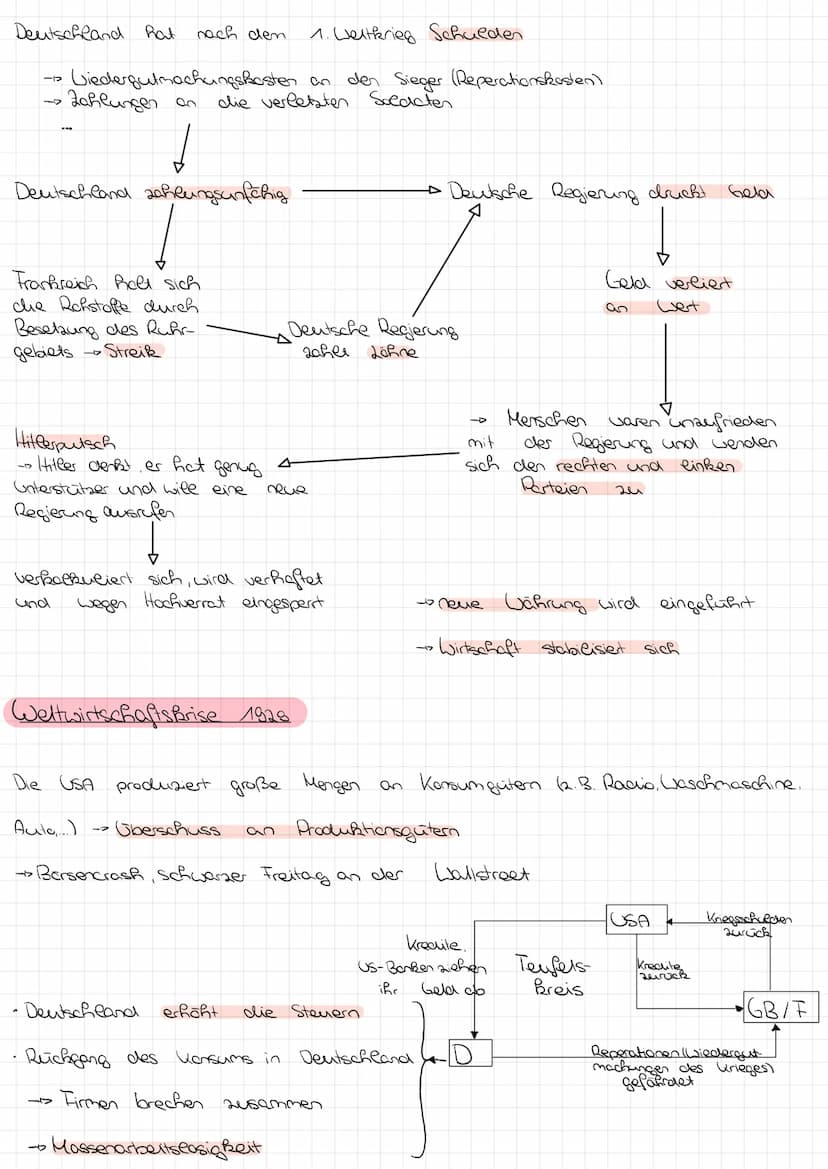 Deutschland hat nach dem 1. Weltkrieg Schulden
→ Wiedergutmachungskosten an den Sieger (Reperationskosten)
→ Zahlungen an die verletzten Soldaten
...
Deutschland zahlungsunfähig
Deutsche Regierung druckt Geld
Frankreich holt sich
die Rohstoffe durch
Besetzung des Ruhr-
gebiets → Streik
Deutsche Regierung
zahlt Löhne
Geld verliert
an Wert
→ Menschen waren unzufrieden
mit der Regierung und wenden
sich den rechten und linken
Parteien zu
Hitlerputsch
→ Hitler denkt er hat genug
Unterstützer und will eine neue
Regierung ausrufen
verkalkuliert sich, wird verhaftet
und wegen Hochverrat eingesperrt
→ neue Währung wird eingeführt
→ Wirtschaft stabilisiert sich
Weltwirtschaftskrise 1928
Die USA produziert große Mengen an Konsumgütern (z.B. Radio, Waschmaschine,
Auto,...) → Überschuss an Produktionsgütern
→ Börsencrash, schwarzer Freitag an der Wallstreet
USA
Kriegsschulden
zurück
Kredite,
US-Banken ziehen
ihr Geld ab
Teufels-
kreis
Kredite
zurück
GB/F
D
Reperationen (Wiedergut-
machungen des Krieges)
gefährdet
· Deutschland erhöht die Steuern
· Rückgang des Konsums in Deutschland
→ Firmen brechen zusammen
→ Massenarbeitslosigkeit